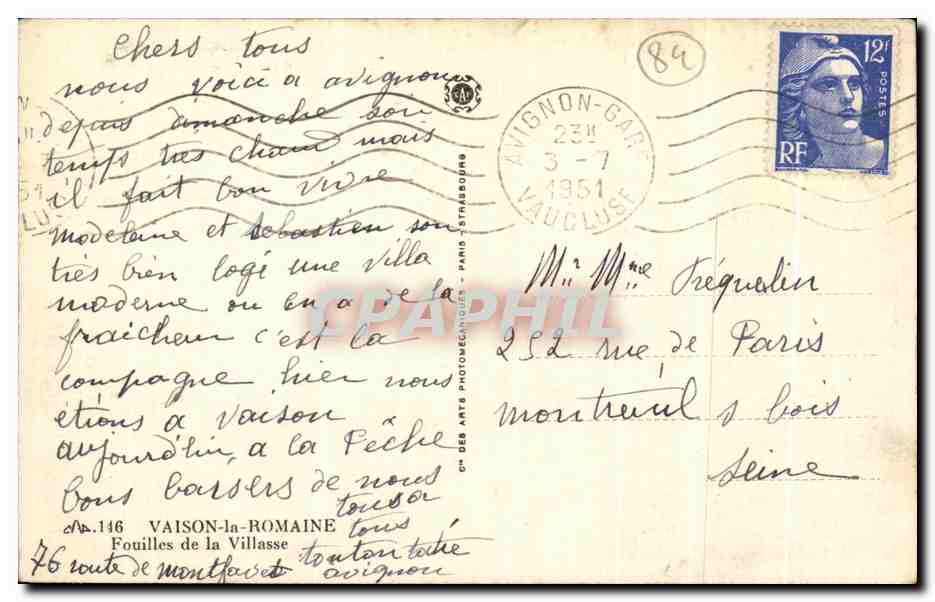 chers tous
nous voici a avignon
depuis dimanche soir
temps tres chaud mais
il fait bon vivre
modeleine et sebastien son
très bien logé une villa
moderne ou en a de la
fraicheur c'est la
compagne hier nous
étions a vaison
aujourd'hui a la Pêche
bons barsers de nous
tous a
tous
tonton tatié
76 route de montfavet avignon
ÇAP.146 VAISON-la-ROMAINE
Fouilles de la Villasse
Cie DES ARTS PHOTOMÉCANIQUES - PARIS - STRASBOURG
CAP
84
AVIGNON-GARE
23H
3 -7
1951
VAUCLUSE
12F
POSTES
RF
Mr Mme Fréquelin
252 rue de Paris
montreuil s bois
seine
CPAPHIL